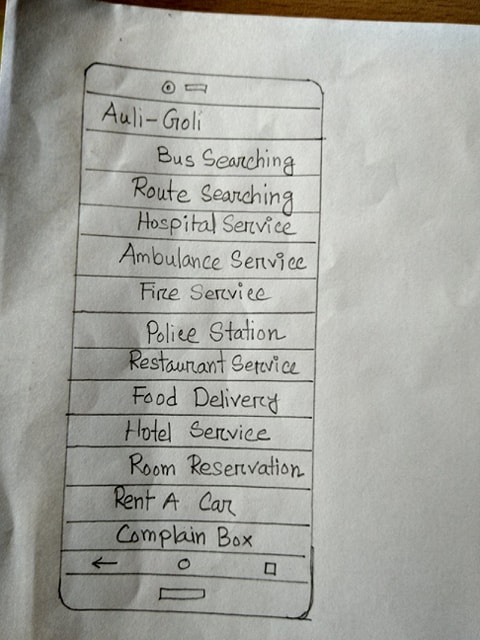 Auli-Goli
Bus Searching
Route Searching
Hospital Service
Ambulance Service
Fire Service
Police Station
Restaurant Service
Food Delivery
Hotel Service
Room Reservation
Rent A Car
Complain Box